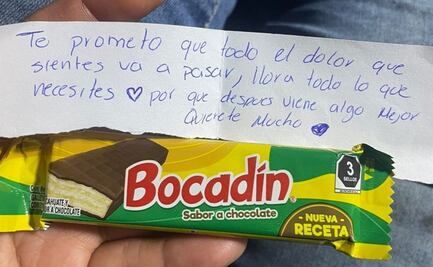 Te prometo que todo el dolor que
sientes va a pasar, llora todo lo que
necesites ♡ por que despues viene algo Mejor
Quierete Mucho
Bocadín
Sabor a chocolate
3
SELLOS
NUEVA
RECETA
A CHOCOLATE